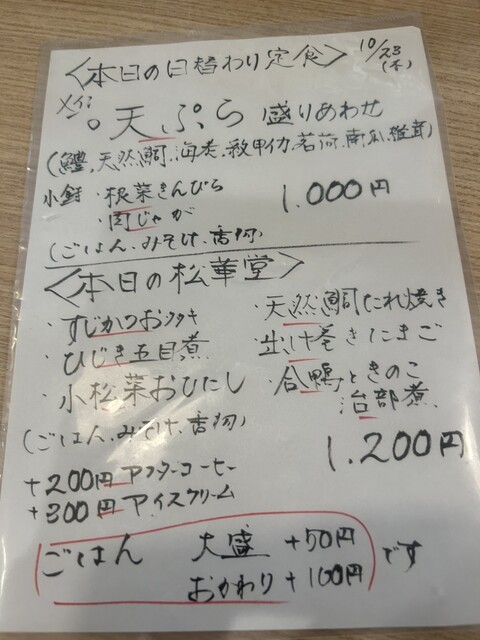 <本日の日替わり定食> 10/23(木)
メイン
。天ぷら盛りあわせ
(鱧、天然鯛、海老、紋甲イカ、茗荷、南瓜、椎茸)
小鉢・根菜きんぴら
・肉じゃが
1.000円
(ごはん、みそ汁、香物)
<本日の松華堂>
・すじかつおタタキ
・ひじき五目煮
・小松菜おひたし
(ごはん、みそ汁、香物)
・天然鯛たれ焼き
・出汁巻きたまご
・合鴨ときのこ
治部煮
1.200円
+200円アフターコーヒー
+300円アイスクリーム
ごはん 大盛 +50円
おかわり+100円 です